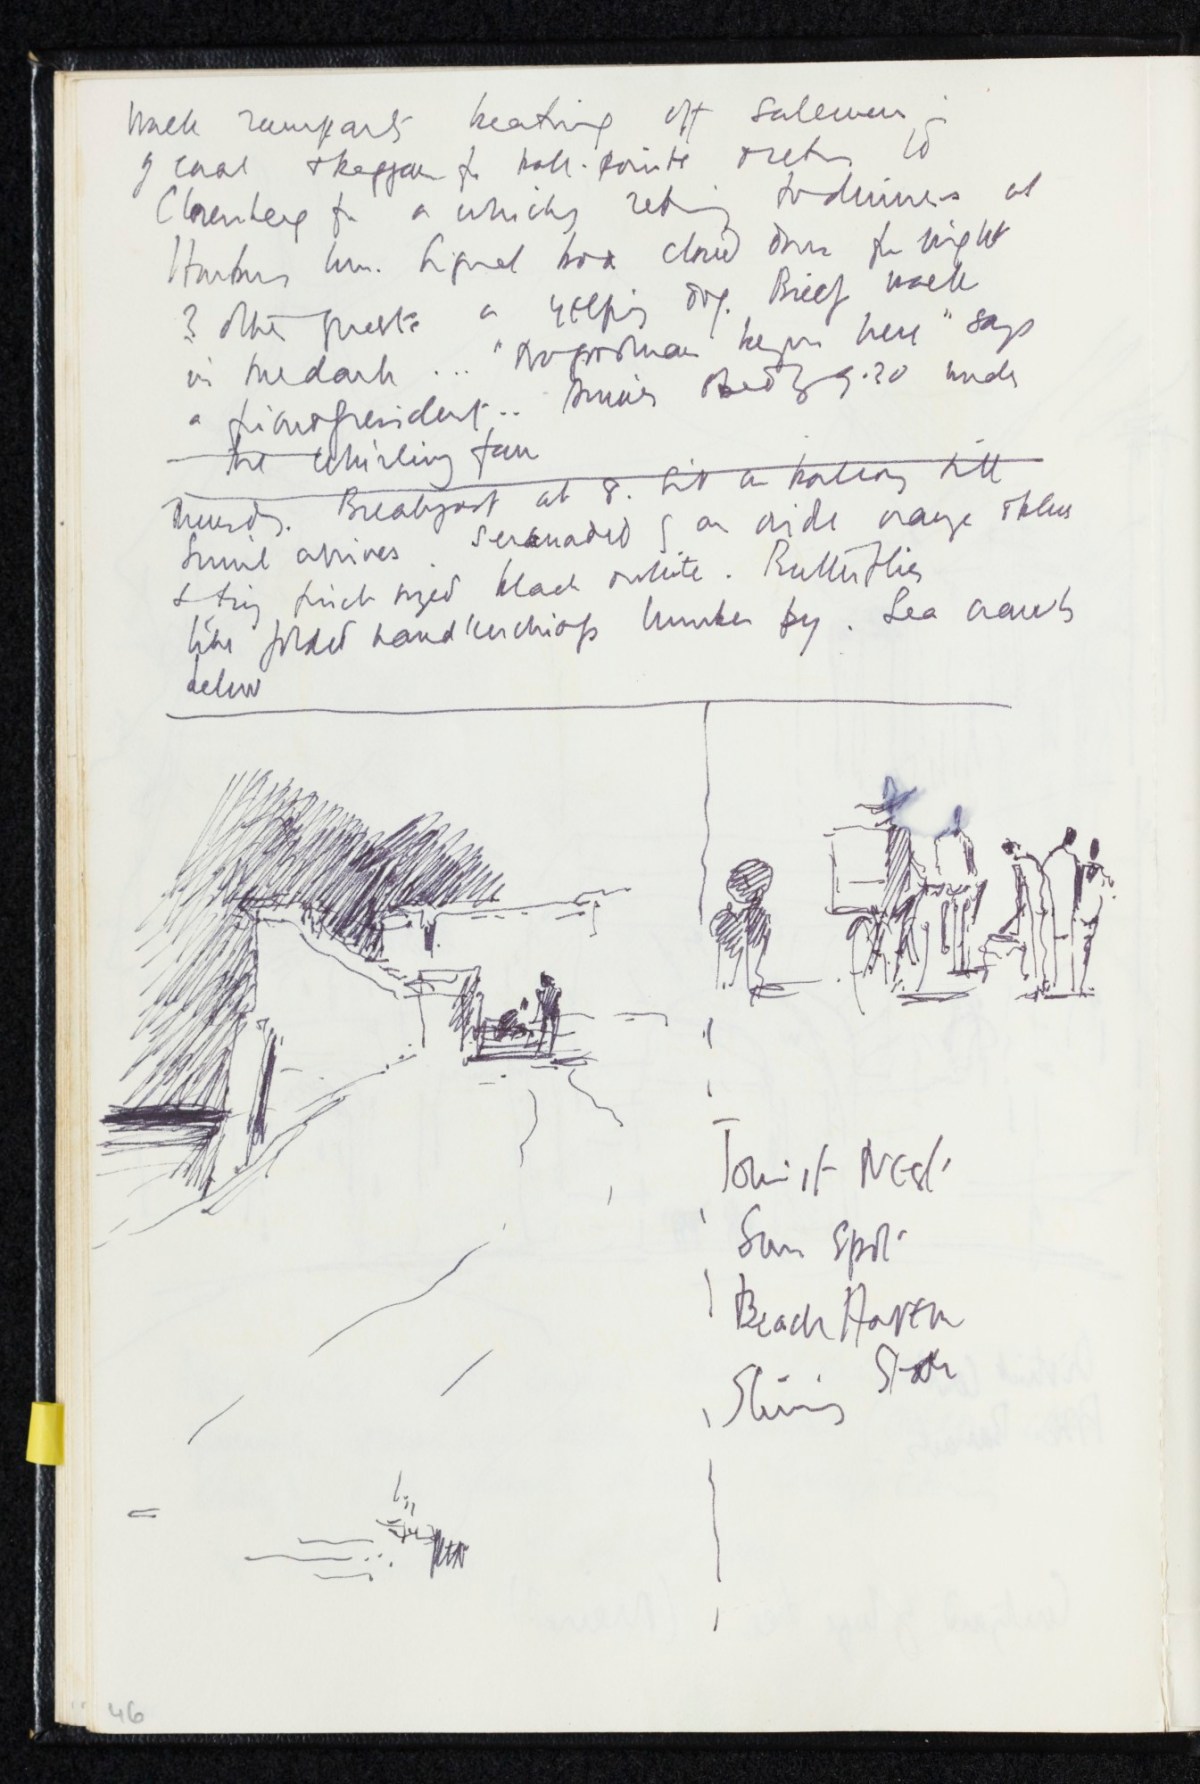 walk ramparts beating off salesmen
of coral & beggars for ball-points return to
Closenberg for a whisky retiring to dinner at
Harbour Inn. Signal box closed down for night
3 other guests a yelping dog. Brief walk
in the dark ... "No footman begins here" says
a ... president .. bed by 9.30 under
the whirling fan
Thursday. Breakfast at 8. Sit on balcony till
Sunil arrives. Serenaded by an oriole orange & black
& tiny finch sized black & white. Butterflies
like folded handkerchiefs lumber by. Sea crawls
below
Tourist Nest
Sun Spot
Beach Haven
Shining Star
46